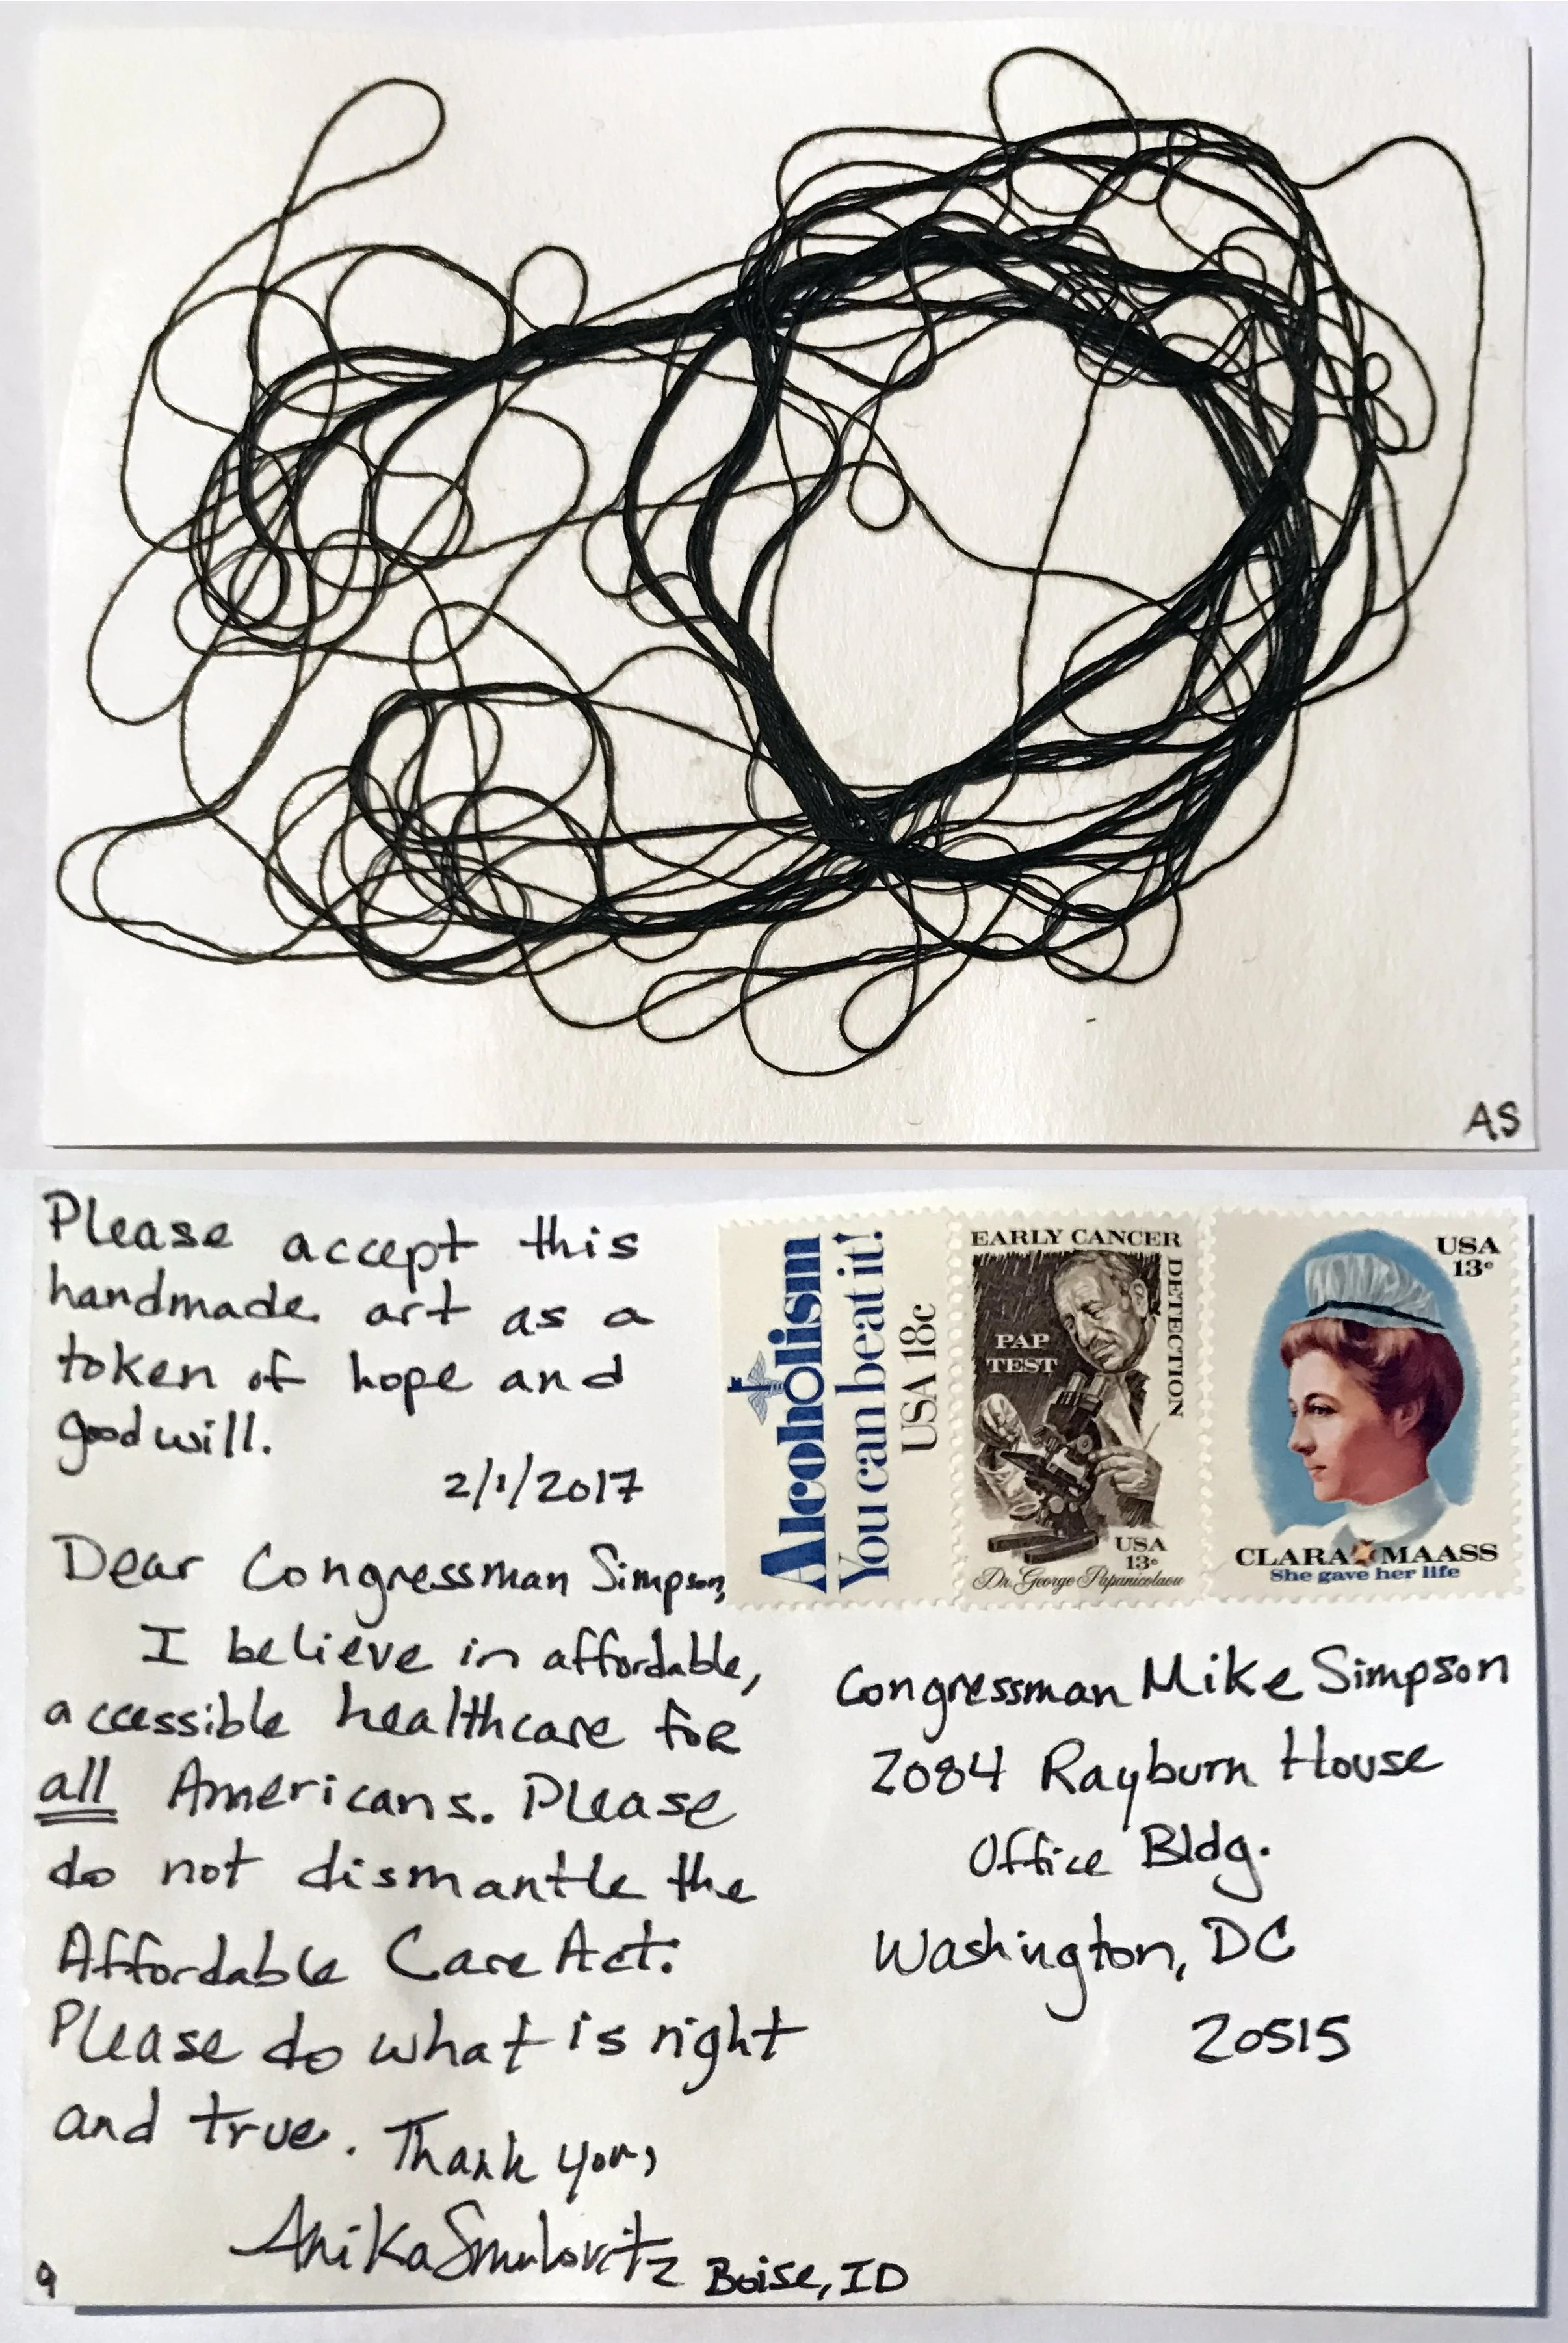 AS
Please accept this
handmade art as a
token of hope and
good will.
2/1/2017
Dear Congressman Simpson,
I believe in affordable,
accessible healthcare for
all Americans. Please
do not dismantle the
Affordable Care Act.
Please do what is right
and true. Thank you,
Anika Smulovitz Boise, ID
9
Alcoholism
You can beat it!
USA 18c
EARLY CANCER
DETECTION
PAP
TEST
USA
13c
Dr. George Papanicolaou
USA
13c
CLARA MAASS
She gave her life
Congressman Mike Simpson
2084 Rayburn House
Office Bldg.
Washington, DC
20515